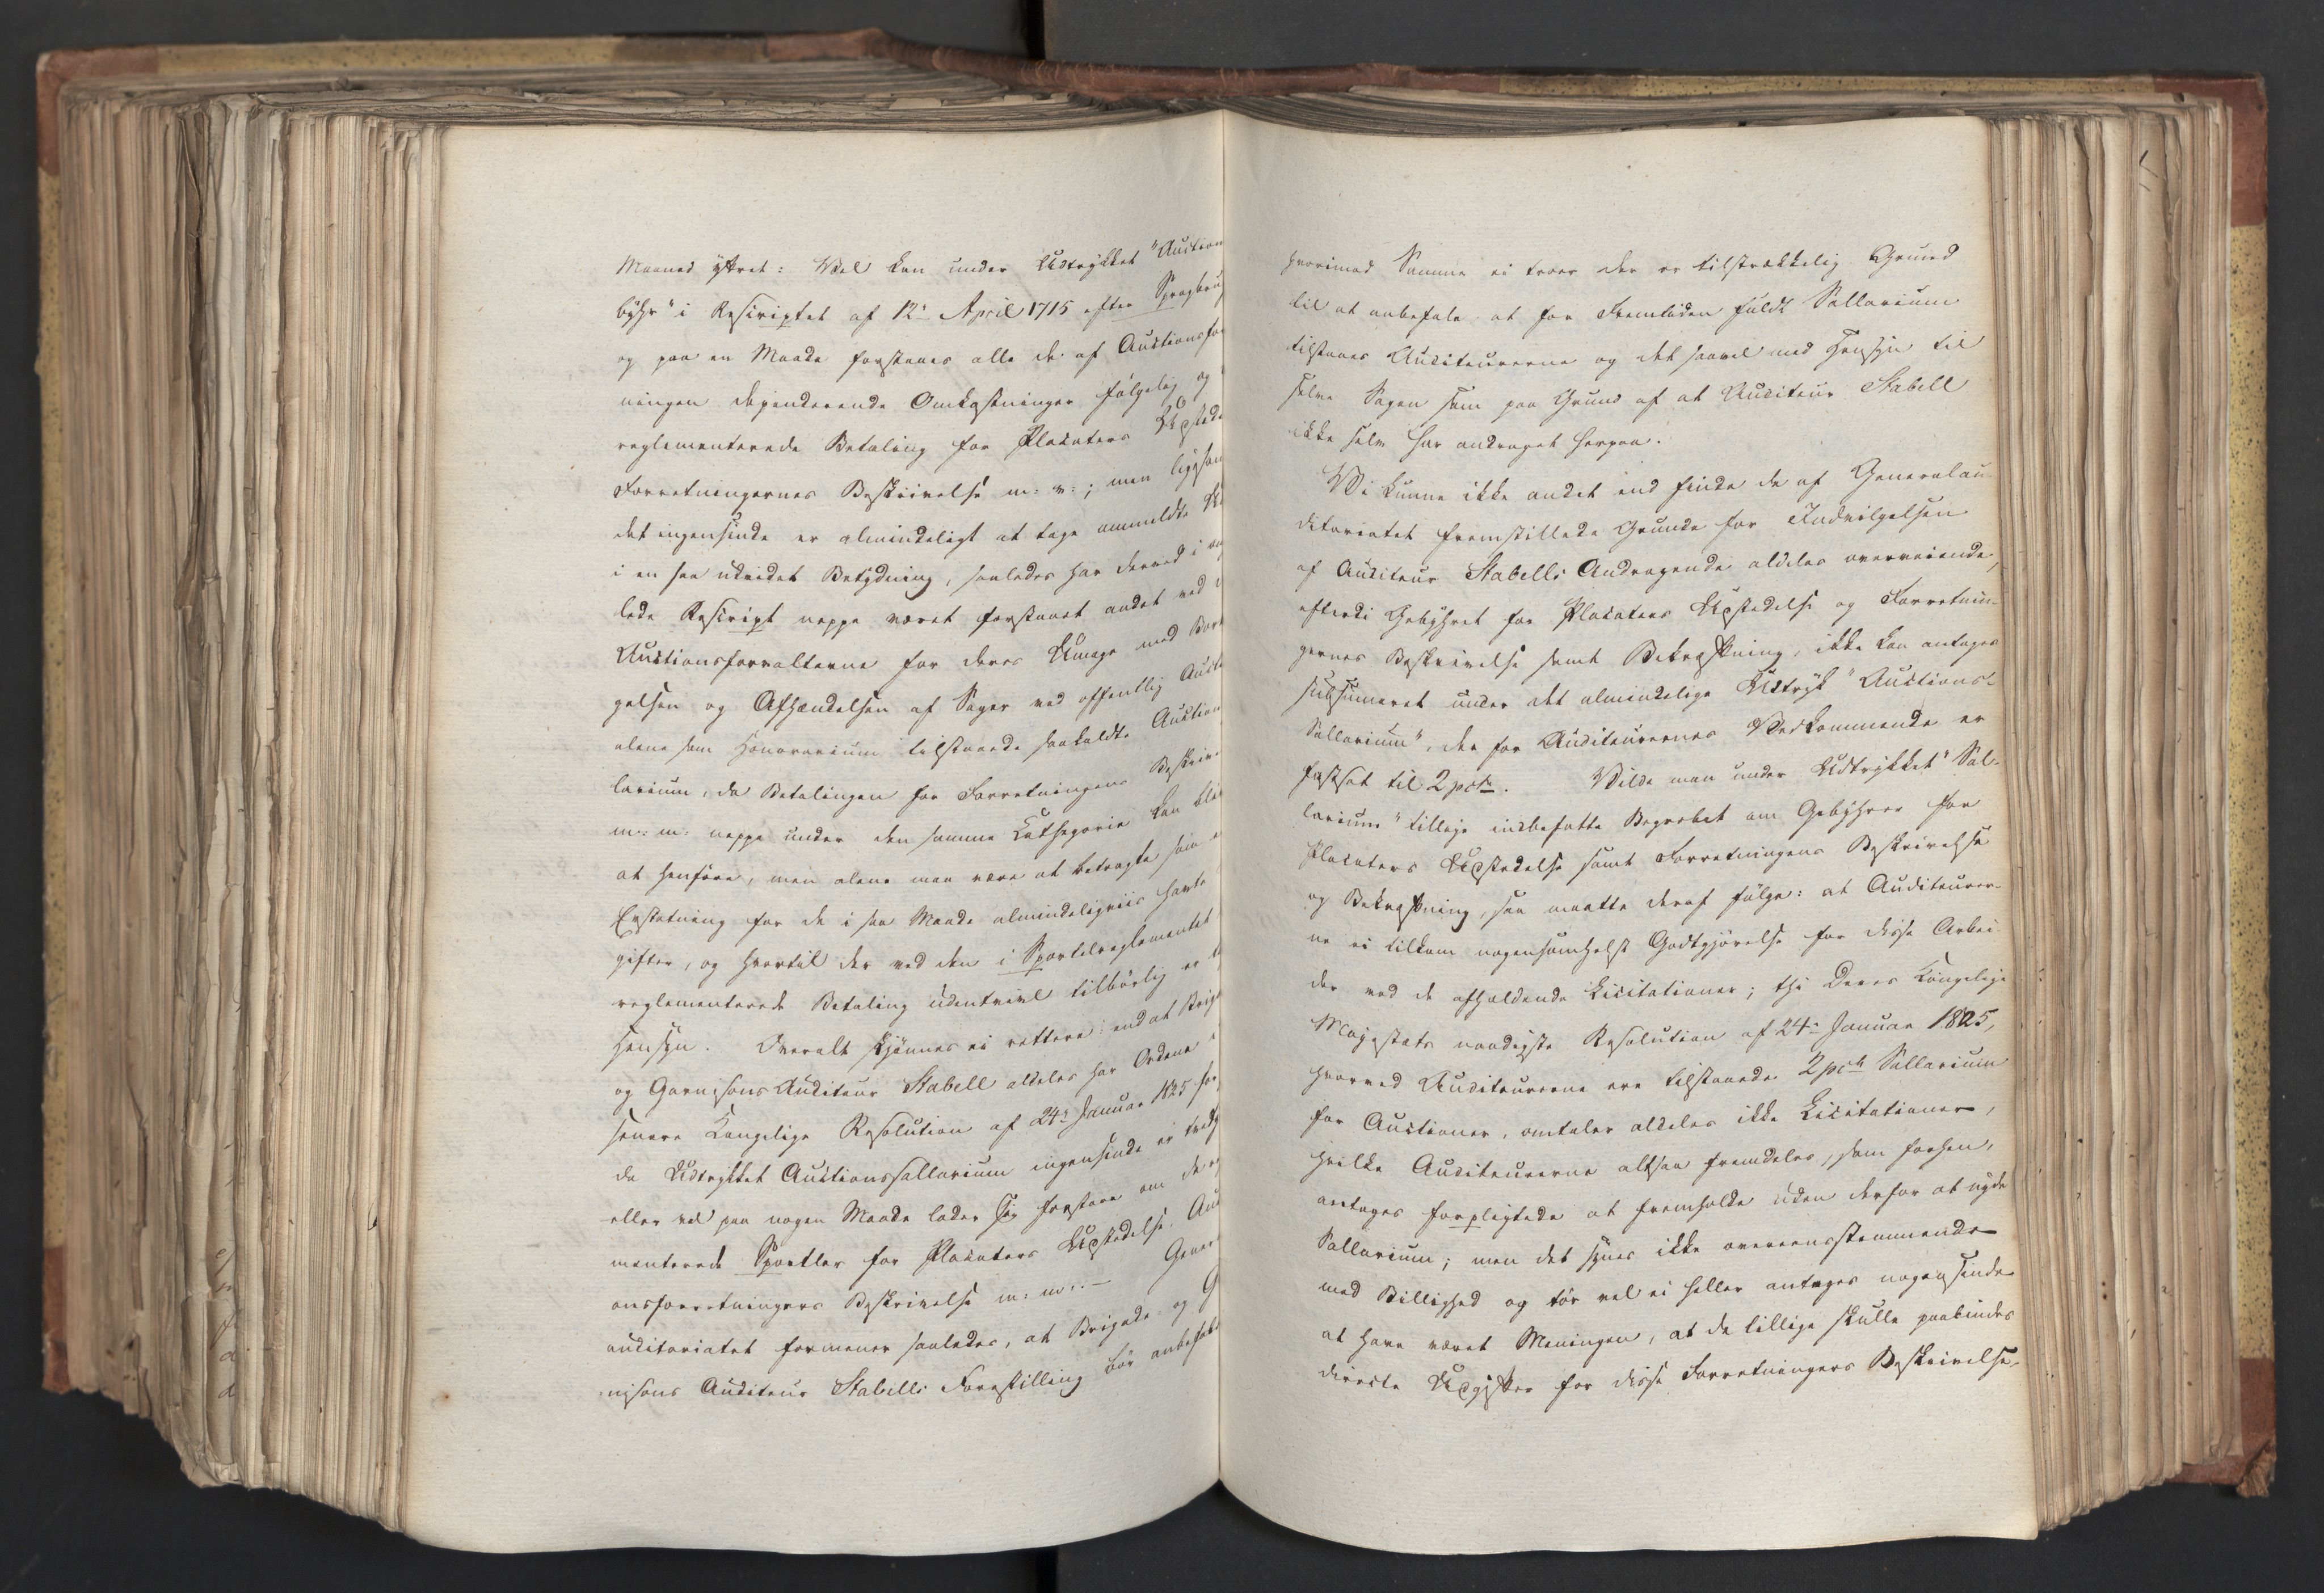 Maaned yttret: Vel kan under Udtrykket "Auction
byhr" i Rescriptet af 12te April 1715 efter Sprogbrug
og paa en Maade forstaaes alle de af Auctionsfor
ningen dependerende Omkostninger følgelig og
reglementerede Betaling for Placaters Udstede
Forretningernes Beskrivelse m: v:; men ligesom
det ingensinde er almindeligt at tage anmeldte
i en saa udvidet Betydning, saaledes har derved i
lede Rescript neppe været forstaaet andet ved
Auctionsforvalterne for deres Umage med
gelsen og Afhændelsen af Sager ved offentlig Auct
alene som Honorarium tilstaaede saakaldte Auction
larium, da Betalingen for Forretningens Beskriv
m: m: neppe under den samme Kathegorie kan bli
at henføre, men alene maa være at betragte som
Erstatning for de i saa Maade almindeligviis havte
gifter, og hvortil der ved den i Sportelreglementet
reglementerede Betaling udentvivl tilbørlig er
Hensyn. Overalt skjønnes ei rettere end at Brig
og Garnisons Auditeur Stabell aldeles har Ordene
senere Kongelige Resolution af 24de Januar 1825 for
da Udtrykket Auctionssallarium ingensinde er
eller vel paa nogen Maade lader sig forstaae om de
menterede Sportler for Placaters Udstedelse, Auc
onsforretningers Beskrivelse m: m:. – Gener
auditoriatet formener saaledes, at Brigade og G
nisons Auditeur Stabells Forestilling bør anbefal
hvorimod Samme ei troer der er tilstrækkelig Grund
til at anbefale at for Fremtiden fuldt Sallarium
tilstaaes Auditeurerne og det saavel med Hensyn til
selve Sagen som paa Grund af at Auditeur Stabell
ikke selv har andraget herpaa.
Vi kunne ikke andet end finde de af Generalau-
ditoriatet fremstillede Grunde for Indvilgelsen
af Auditeur Stabells Andragende aldeles overveiende,
efterdi Gebyhret for Placaters Udstedelse og Forretnin-
gernes Beskrivelse samt Bekræftning, ikke kan antages
subsumeret under det almindelige Udtryk "Auctions-
Sallarium", der for Auditeurernes Vedkommende er
fastsat til 2 pct. Vilde man under Udtrykket "Sal-
larium" tillige indbefatte Begrebet om Gebyhrer for
Placaters Udstedelse samt Forretningens Beskrivelse
og Bekræftning, saa maatte deraf følge: at Auditeurer-
ne ei tilkom nogensomhelst Godtgjørelse for disse Arbei-
der ved de afholdende Licitationer; thi Deres Kongelige
Majestæts naadigste Resolution af 24de Januar 1825,
hvorved Auditeurerne ere tilstaaede 2 pct Sallarium
for Auctioner, omtaler aldeles ikke Licitationer,
hvilke Auditeurerne altsaa fremdeles, som forhen,
antages forpligtede at fremholde uden derfor at nyde
Sallarium; men det synes ikke overeensstemmende
med Billighed og tør vel ei heller antages nogensinde
at have været Meningen, at de tillige skulle paabindes
directe Udgifter for disse Forretningers Beskrivelse